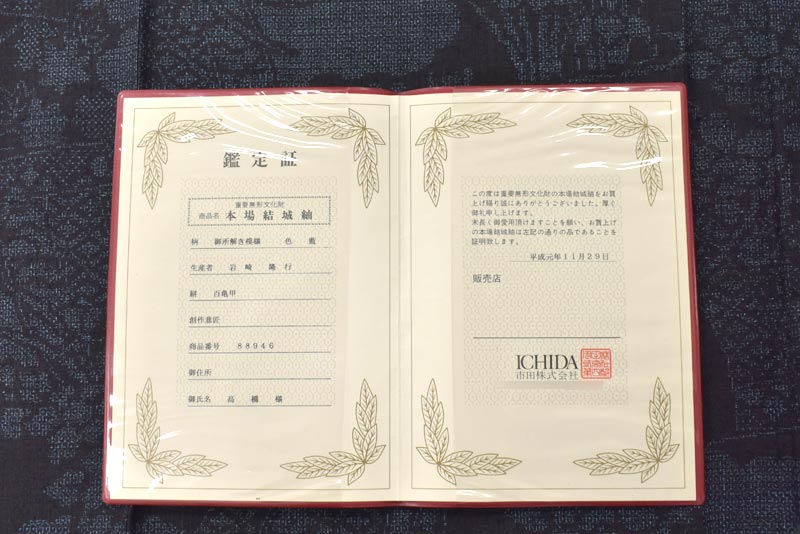 鑑定証
重要無形文化財
商品名 本場結城紬
柄 御所解き模様 色 藍
生産者 岩崎 隆行
絣 百亀甲
創作意匠
商品番号 88946
御住所
御氏名 高橋 様
この度は重要無形文化財の本場結城紬をお買
上げ賜り誠にありがとうございました。厚く
御礼申し上げます。
末長く御愛用頂けますことを願い、お買上げ
の本場結城紬は左記の通りの品であることを
証明致します。
平成元年11月29日
販売店
ICHIDA
市田株式会社